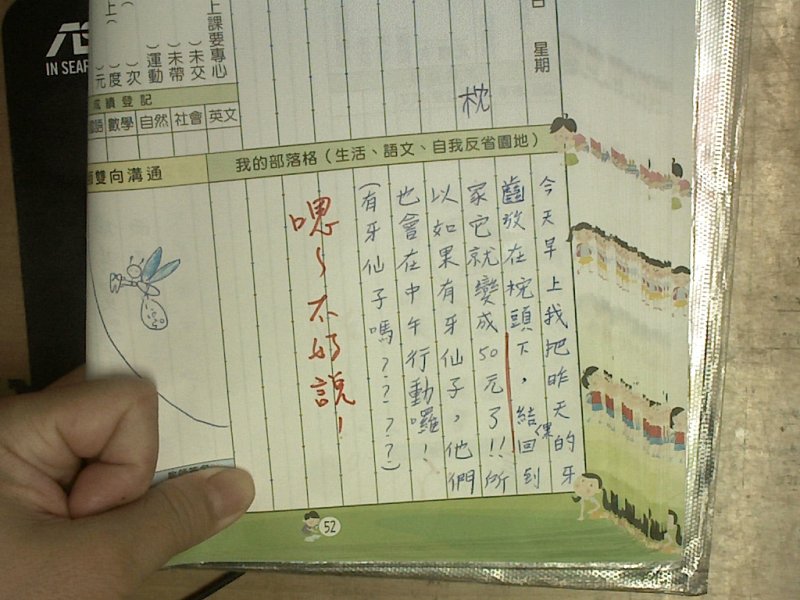 IN SEAR
星期
枕
上課要專心
）未交
）未帶
）運動
）次（
）度（上
）元
成績登記
英文
社會
自然
數學
我的部落格（生活、語文、自我反省園地）
雙向溝通
今天早上我把昨天的牙
齒放在枕頭下，結果回到
家它就變成50元了!!所
以如果有牙仙子，他們
也會在中午行動囉！
（有牙仙子嗎？？？？）
嗯～不好說！
52